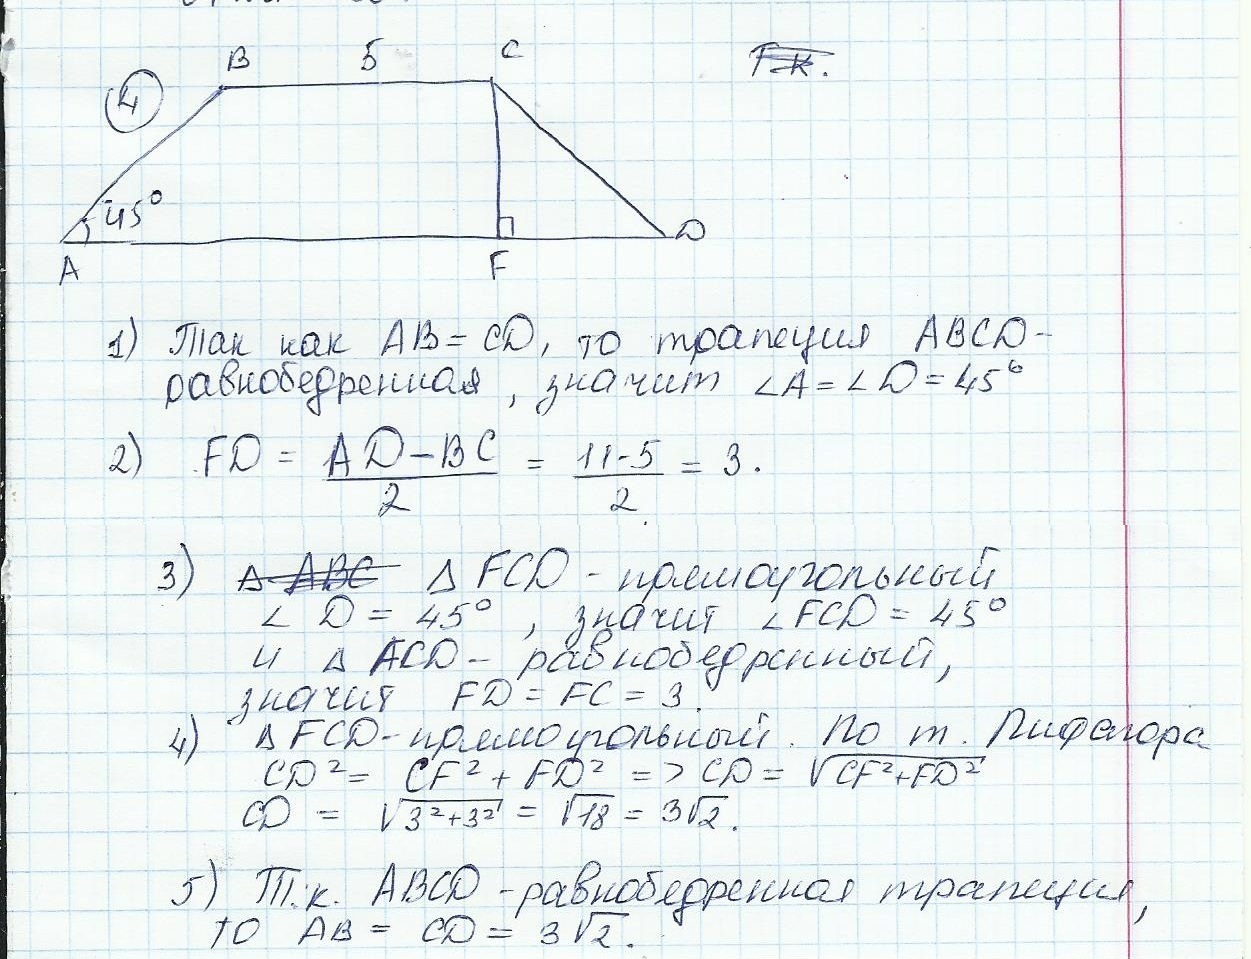 B 5 C
4
45°
A F D
1) Так как AB = CD, то трапеция ABCD-
равнобедренная, значит ∠A = ∠D = 45°
2) FD = (AD - BC)/2 = (11-5)/2 = 3.
3) Δ FCD - прямоугольный
∠ D = 45°, значит ∠FCD = 45°
и Δ FCD - равнобедренный,
значит FD = FC = 3.
4) Δ FCD - прямоугольный. По т. Пифагора
CD² = CF² + FD² => CD = √(CF²+FD²)
CD = √(3²+3²) = √18 = 3√2.
5) Т.к. ABCD - равнобедренная трапеция,
то AB = CD = 3√2.